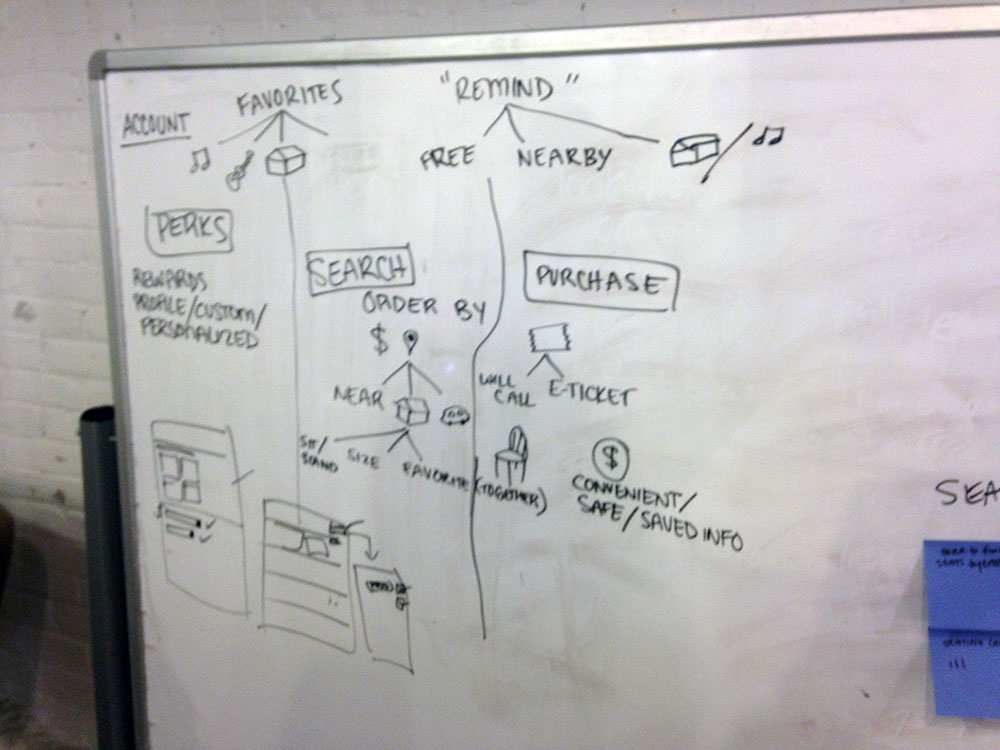 FAVORITES
"REMIND"
ACCOUNT
FREE
NEARBY
PERKS
REWARDS
PROFILE/CUSTOM/
PERSONALIZED
SEARCH
ORDER BY
$
NEAR
SIT/
STAND
SIZE
FAVORITE
PURCHASE
WILL
CALL
E-TICKET
(TOGETHER)
$
CONVENIENT/
SAFE/SAVED INFO
SEA
SEATS
SEATING